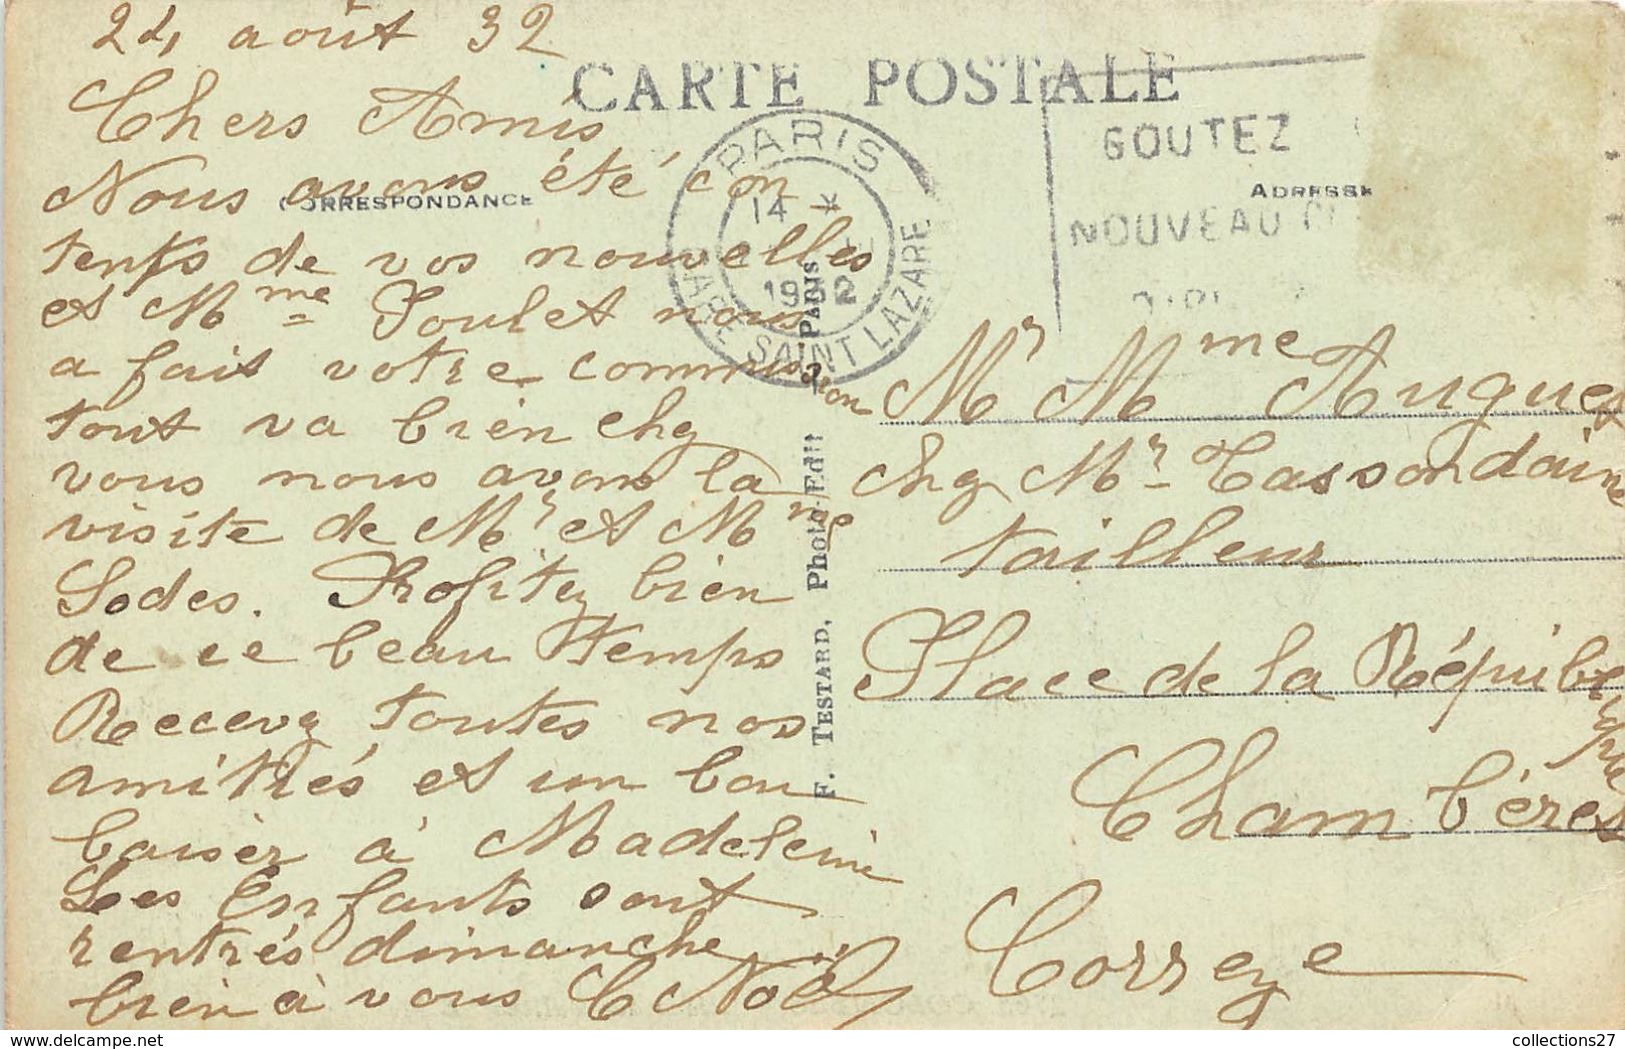 24 août 32
CARTE POSTALE
Chers Amis
Nous avons été con
tents de vos nouvelles
et Mme Poulet nous
a fait votre commission
tout va bien chez
vous nous avons la
visite de Mr et Mme
Sodes. Profitez bien
de ce beau temps
Recevez toutes nos
amitiés et un bon
baiser à Madeleine
Les Enfants sont
rentrés dimanche
bien à vous C Noël
CORRESPONDANCE
PARIS
14 *
1932
GARE SAINT LAZARE
GOUTEZ
NOUVEAU
ADRESSE
F. TESTARD, Photo-Edit PARIS
Mr Mme Augues
chez Mr Tassondaine
tailleur
Place de la République
Chambéres
Correze
collections27